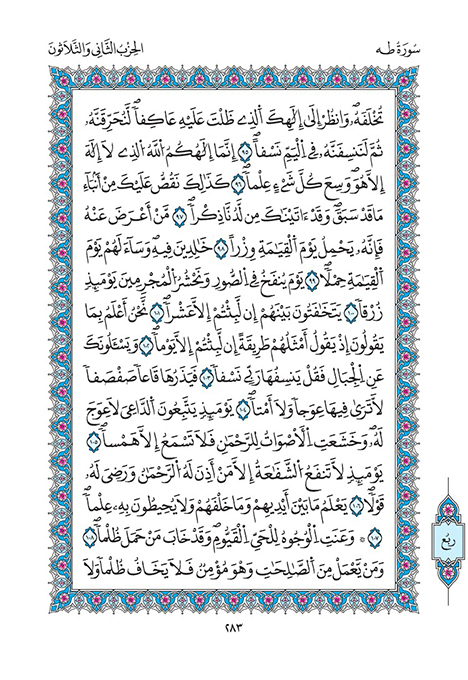 سُورَةُ طـه
الحِزْبُ الثَّانِي وَالثَّلَاثُونَ
تُخْلَفَهُۥ وَانظُرِ اِلَىٰٓ إِلَٰهِكَ اَلذِے ظَلْتَ عَلَيْهِ عَاكِفاٗ لَّنُحَرِّقَنَّهُۥ
ثُمَّ لَنَنسِفَنَّهُۥ فِے اِلْيَمِّ نَسْفاً ۹٥ اِنَّمَآ إِلَٰهُكُمُ اُللَّهُ اُلذِے لَآ إِلَٰهَ
إِلَّا هُوَ وَسِعَ كُلَّ شَےْءٍ عِلْماٗ ۹٦ كَذَٰلِكَ نَقُصُّ عَلَيْكَ مِنَ اَنۢبَآءِ
مَا قَدْ سَبَقَ وَقَدَ اٰتَيْنَٰكَ مِن لَّدُنَّا ذِكْراٗ ۹٧ مَّنَ اَعْرَضَ عَنْهُ
فَإِنَّهُۥ يَحْمِلُ يَوْمَ اَلْقِيَٰمَةِ وِزْراً ۹٨ خَٰلِدِينَ فِيهِ وَسَآءَ لَهُمْ يَوْمَ
اَلْقِيَٰمَةِ حِمْلاٗ ۹۹ يَوْمَ يُنفَخُ فِے اِلصُّورِ وَنَحْشُرُ اُلْمُجْرِمِينَ يَوْمَئِذٖ
زُرْقاٗ ١٠٠ يَتَخَٰفَتُونَ بَيْنَهُمُۥٓ إِن لَّبِثْتُمُۥٓ إِلَّا عَشْراٗ ١٠١ نَّحْنُ أَعْلَمُ بِمَا
يَقُولُونَ إِذْ يَقُولُ أَمْثَلُهُمْ طَرِيقَةً إِن لَّبِثْتُمُۥٓ إِلَّا يَوْماٗ ١٠٢ وَيَسْـَٔلُونَكَ
عَنِ اِلْجِبَالِ فَقُلْ يَنسِفُهَا رَبِّے نَسْفاٗ ١٠٣ فَيَذَرُهَا قَاعاٗ صَفْصَفاٗ
لَّا تَرَىٰ فِيهَا عِوَجاٗ وَلَآ أَمْتاٗ ١٠٤ يَوْمَئِذٖ يَتَّبِعُونَ اَلدَّاعِيَ لَا عِوَجَ
لَهُۥ وَخَشَعَتِ اِلَاصْوَاتُ لِلرَّحْمَٰنِ فَلَا تَسْمَعُ إِلَّا هَمْساٗ ١٠٥
يَوْمَئِذٖ لَّا تَنفَعُ اُلشَّفَٰعَةُ إِلَّا مَنَ اَذِنَ لَهُ اُلرَّحْمَٰنُ وَرَضِيَ لَهُۥ
قَوْلاٗ ١٠٦ يَعْلَمُ مَا بَيْنَ أَيْدِيهِمْ وَمَا خَلْفَهُمْ وَلَا يُحِيطُونَ بِهِۦ عِلْماٗ
١٠٧ ۞ وَعَنَتِ اِلْوُجُوهُ لِلْحَيِّ اِلْقَيُّومِ وَقَدْ خَابَ مَنْ حَمَلَ ظُلْماٗ ١٠٨
وَمَنْ يَّعْمَلْ مِنَ اَلصَّٰلِحَٰتِ وَهُوَ مُؤْمِنٞ فَلَا يَخَافُ ظُلْماٗ وَلَا
ربع
٢٨٣